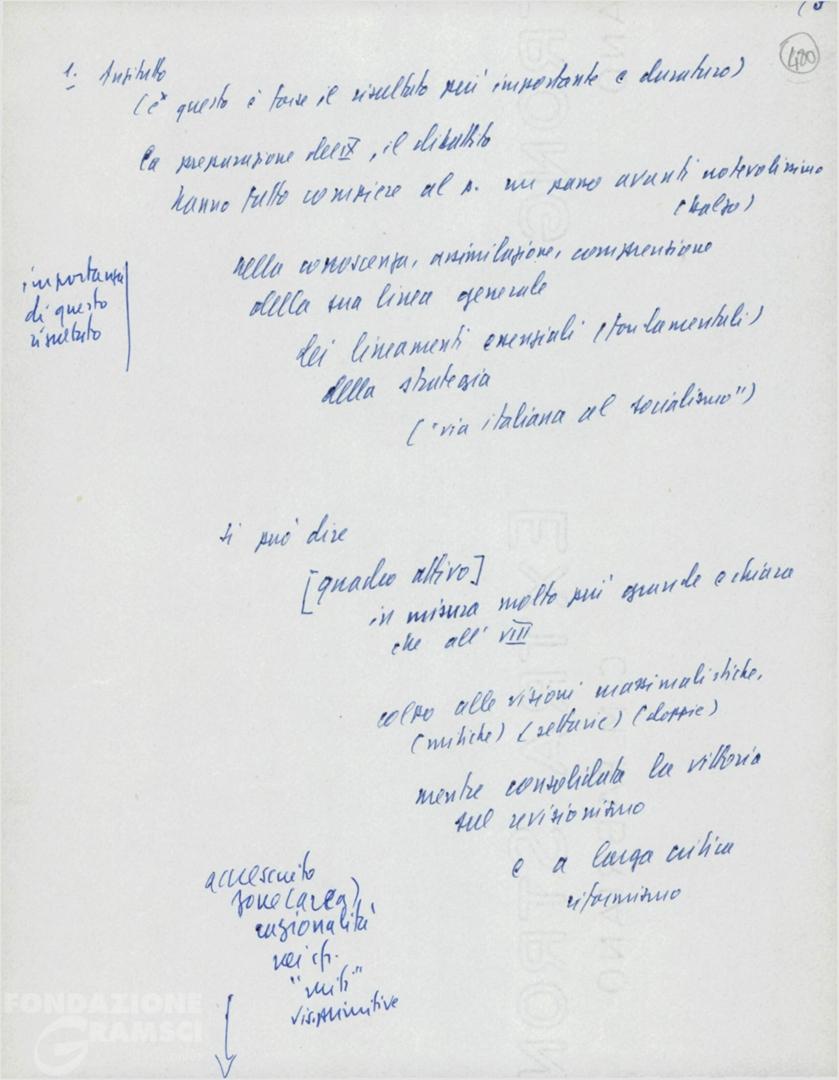 480
1. Anzitutto
(e questo è forse il risultato più importante e duraturo)
la preparazione del IX, il dibattito
hanno fatto compiere al p. un passo avanti notevolissimo
(balzo)
nella conoscenza, assimilazione, comprensione
della sua linea generale
dei lineamenti essenziali (fondamentali)
della strategia
("via italiana al socialismo")
importanza
di questo
risultato
si può dire
[quadro attivo]
in misura molto più grande e chiara
che all' VIII
colpo alle visioni massimalistiche,
(mitiche) (settarie) (doppie)
mentre consolidata la vittoria
sul revisionismo
e a larga critica
riformismo
accresciuto
zone (area)
razionalità
nei cfr.
"miti"
vis. primitive
FONDAZIONE
GRAMSCI
EXTRA STRONG